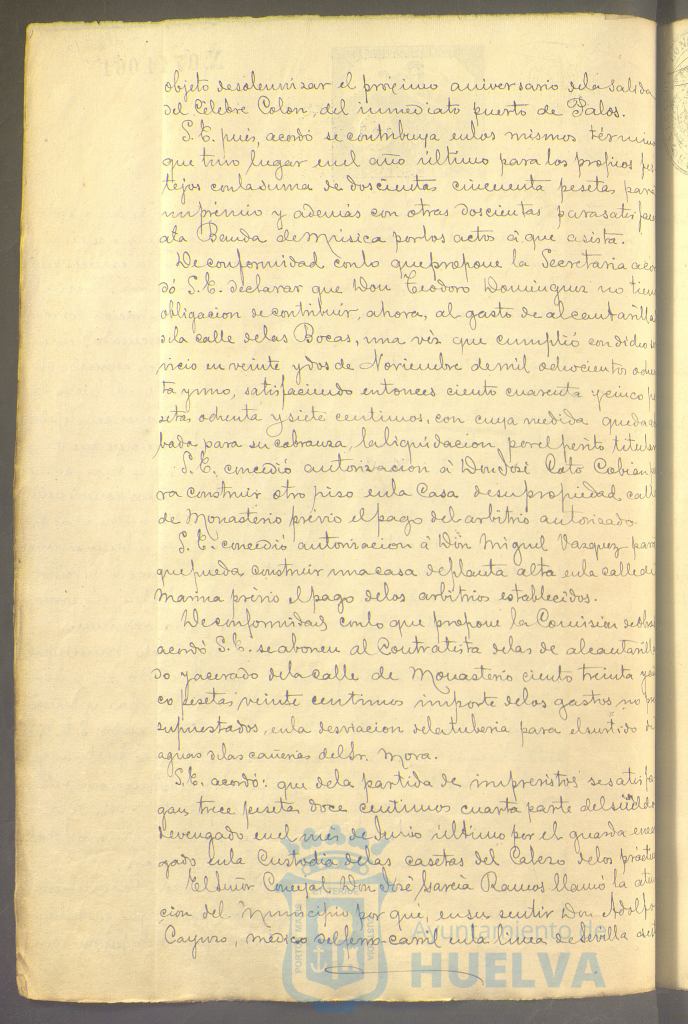 objeto desolemnizar el próximo aniversario dela salida
del Célebre Colon, del inmediato puerto de Palos.
S.E. pues, acordó se contribuya enlos mismos términ
que tuvo lugar enel año último para los propios fes
tejos conlasuma de doscientas cincuenta pesetas para
unpremio y además con otras doscientas parasatisfacer
ála Banda de Música porlos actos á que asista.
De conformidad conlo quepropone la Secretaria acor
dó S.E. declarar que Don Teodoro Dominguez no tiene
obligacion de contribuir, ahora, al gasto de alcantarilla
dela calle delas Bocas, una vez que cumplió con dicho
vicio en veinte ydos de Noviembre demil ochocientos ochen
ta yuno, satisfaciendo entonces ciento cuarenta ycinco pe
setas ochenta ysiete centimos, con cuya medida queda
bada para su cobranza, laliquidacion porel perito titular
S.E. concedió autorizacion á Don José Coto Cobian pa
ra construir otro piso enla Casa desupropiedad calle
de Monasterio prévio el pago del arbitrio autorizado
S.E. concedió autorizacion á Don Miguel Vazquez para
quepueda construir unacasa deplanta alta enla calle de
Marina prévio el pago delos arbitrios establecidos.
De conformidad conlo que propone la Comision deobras
acordó S.E. seabonen al Contratista delas de alcantarilla
do yacerado dela calle de Monasterio ciento treinta y
co pesetas veinte centimos importe delos gastos no pre
supuestados, enla desviacion delatuberia para elsurtido de
aguas delas cañerias delSr. Mora.
S.E. acordó: que dela partida de imprevistos sesatisfa
gan trece pesetas doce centimos cuarta parte delsueldo
devengado enel mes de Junio último por el guarda encar
gado enla Custodia delas casetas del Cabezo delos
ElSeñor Concejal Don José Garcia Ramos llamó la aten
cion del Municipio por qué, ensu sentir Don Adolfo
Cayuso, médico delferro-carril enla linea deSevilla
Ayuntamiento de
HUELVA